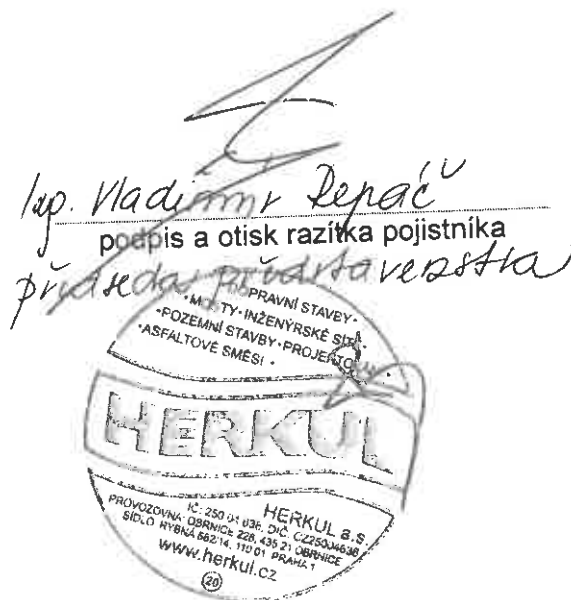 Ing. Vladimír Řepáč
podpis a otisk razítka pojistníka
předseda představenstva
PRAVNÍ STAVBY·
·MOSTY·INŽENÝRSKÉ SÍTĚ·
·POZEMNÍ STAVBY·PROJEKTOV
·ASFALTOVÉ SMĚSI·
HERKUL
HERKUL a.s.
IČ: 250 04 638, DIČ: CZ25004638
PROVOZOVNA: OBRNICE 228, 435 21 OBRNICE
SÍDLO RYBNÁ 682/14, 110 01 PRAHA 1
www.herkul.cz
20